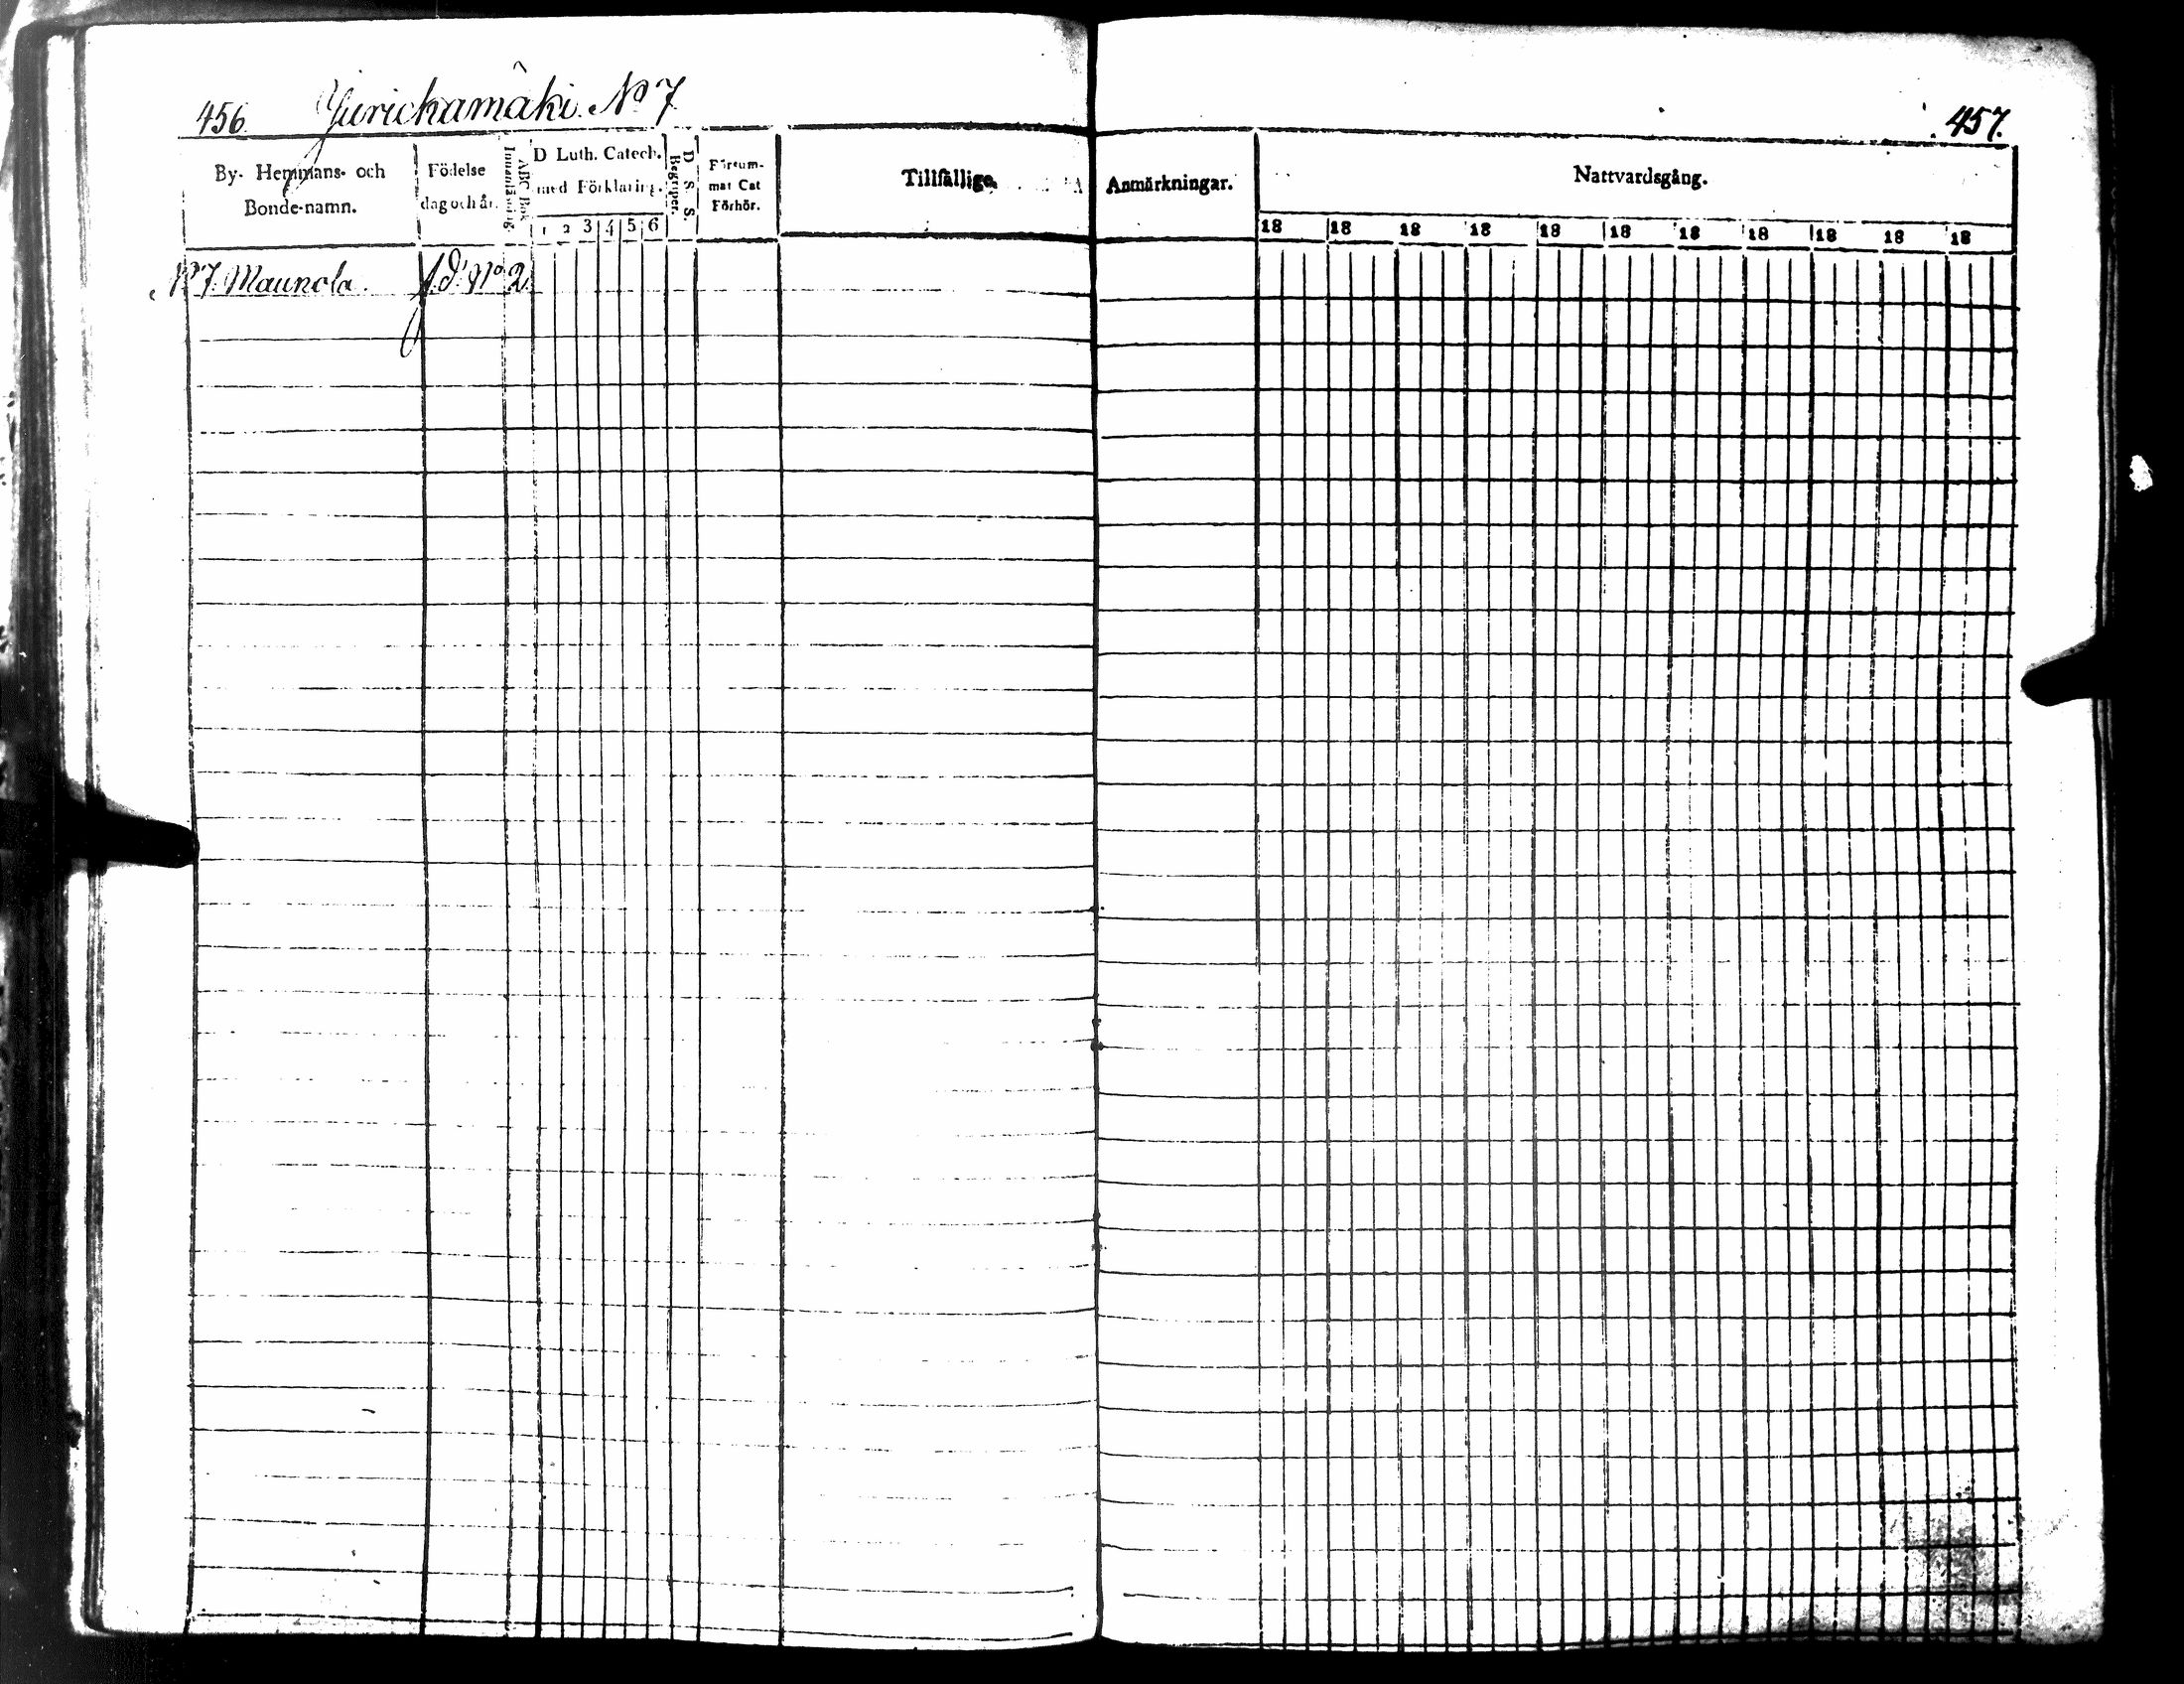 456. Jurickamäki. No 7
457.
By- Hemmans- och
Bonde-namn.
Födelse
dag och år.
ABC Bok
Innanläsning.
D Luth. Catech.
med Förklaring.
1 2 3 4 5 6
D. S. S.
Begriper.
Försum-
mat Cat
Förhör.
Tillfällige
Anmärkningar.
Nattvardsgång.
18 18 18 18 18 18 18 18 18 18 18
No 7. Maunola. No 2